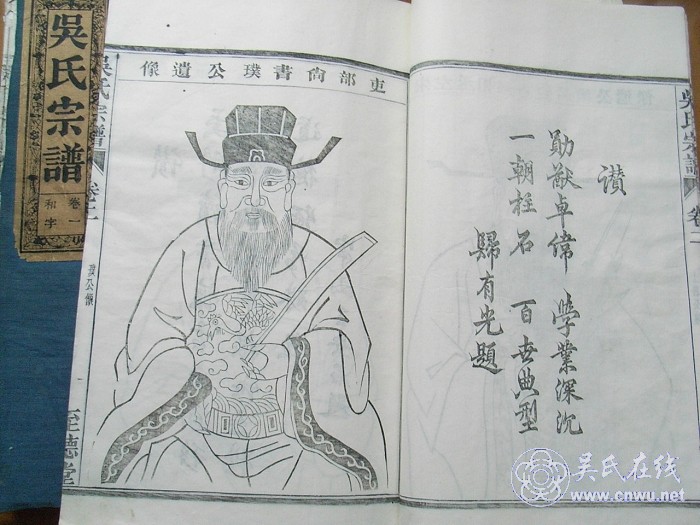 吳氏宗譜
卷一
和字
吏部尚書璞公遺像
讃
勛猷卓偉 學業深沉
一朝柱石 百世典型
歸有光題
吳氏宗譜 卷二
吳氏宗譜
至德堂
吴氏在线
www.cnwu.net